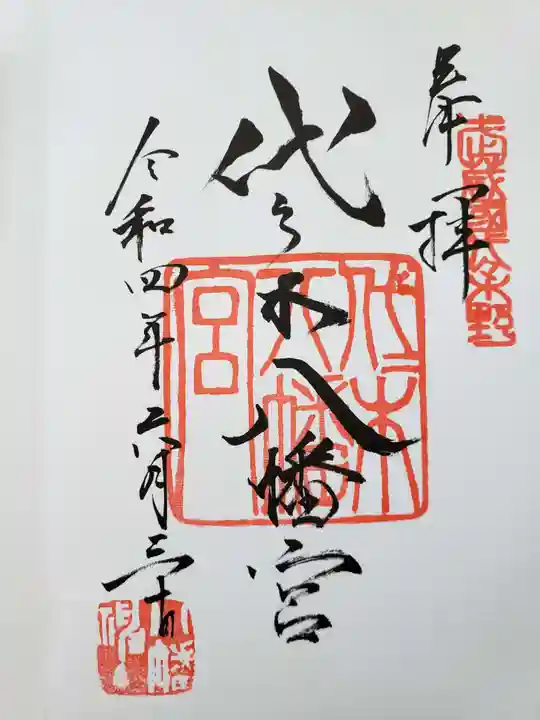 奉拝
武蔵國代々木野
代々木八幡宮
代々木八幡宮
令和四年六月三十日